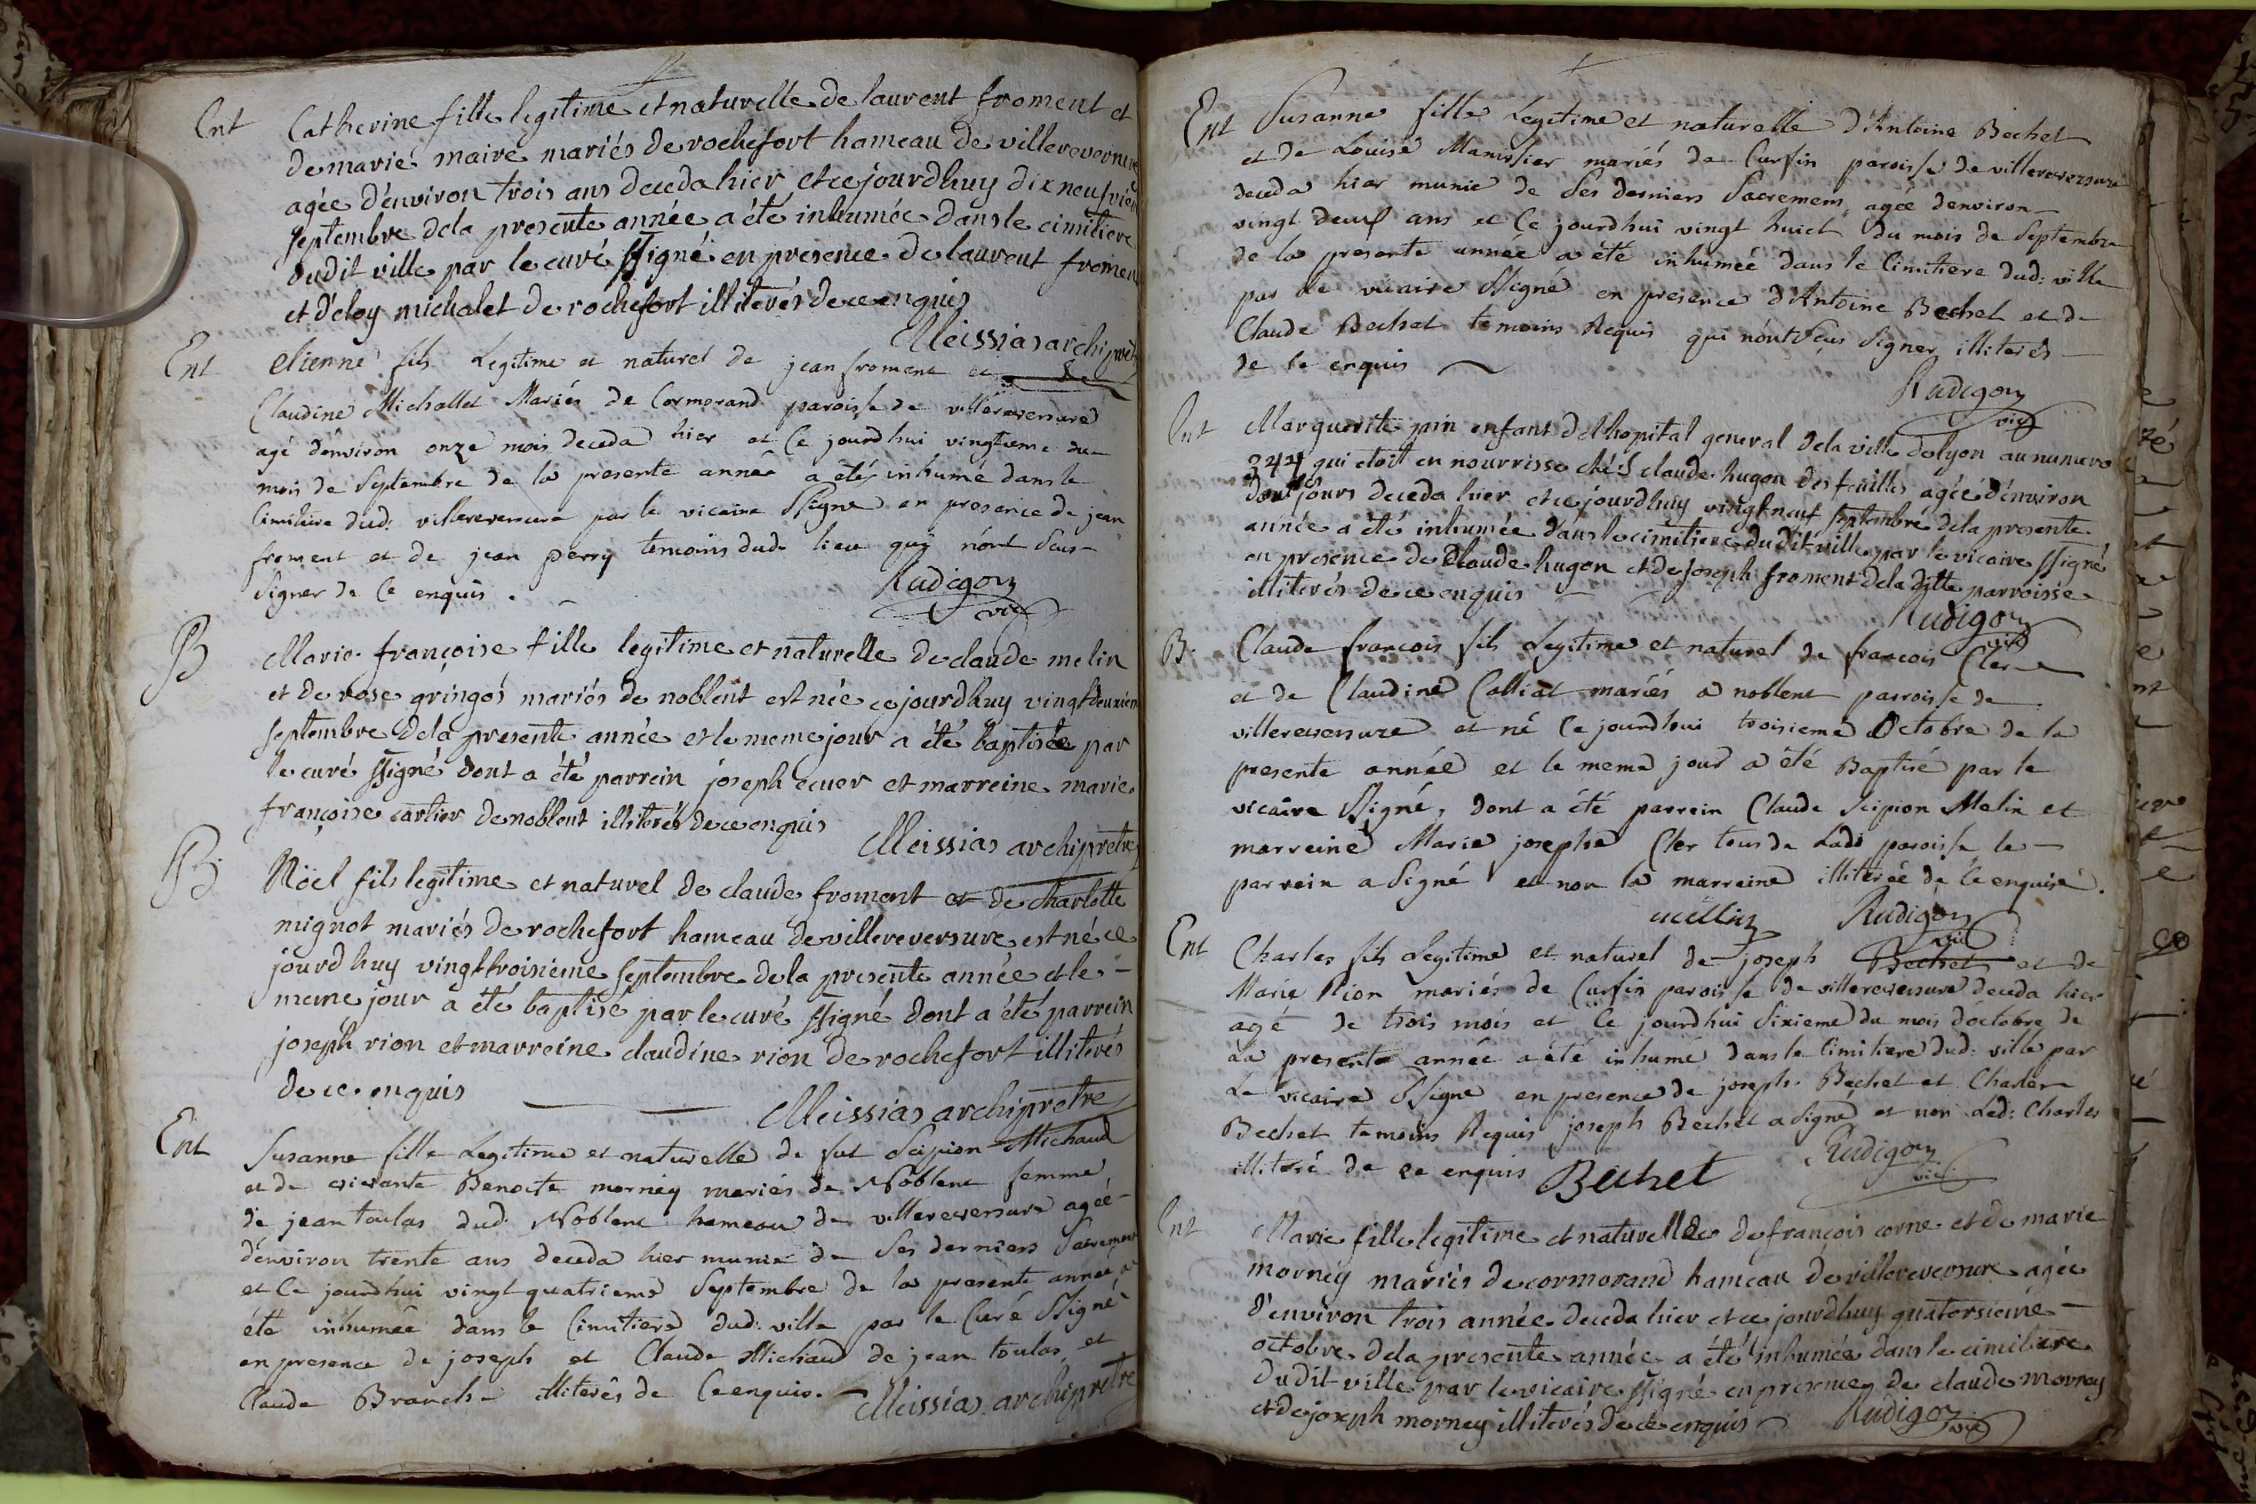 Ent Catherine fille legitime et naturelle de laurent froment et
de marie maire mariés de rochefort hameau de villereversure
agée d'environ trois ans deceda hier et ce jourdhuy dix neufvieme
septembre dela presente année a été inhumée dans le cimitiere
dudit ville par le curé ssigné en presence de laurent froment
et d'eloy michalet de rochefort illiterés de ce enquis
Meissias archiprêtre
Ent etienne fils Legitime et naturel de jean froment et de
Claudine Michallet Mariés de Cormorand paroisse de villereversure
agé d'environ onze mois deceda hier et Ce jourd'hui vingtieme du
mois de Septembre de la presente année a été inhumé dans le
Cimitiere dud: villereversure par le vicaire Ssigné en presence de jean
froment et de jean perry temoins dud. lieu quy n'ont seus
Signer de Ce enquis.
Rudigoz
vic
B Marie françoise fille legitime et naturelle de claude melin
et de rose gringos mariés de noblent est née ce jourdhuy vingtdeuxieme
septembre dela presente année et le meme jour a été baptisée par
le curé ssigné dont a été parrein joseph ecuer et marreine marie
françoise cartier de noblent illiterés de ce enquis
Meissias archiprêtre
B. Nöel fils legitime et naturel de claude froment et de charlotte
mignot mariés de rochefort hameau de villereversure est né ce
jourdhuy vingttroisieme septembre dela presente année et le
meme jour a été baptisé par le curé ssigné dont a été parrein
joseph rion et marreine claudine rion de rochefort illiterés
de ce enquis
Meissias archiprêtre
Ent Susanne fille Legitime et naturelle de fut Scipion Michaud
et de vivante Benoite morney mariés de Noblent femme
de jean toulas dud. Noblent hameau de villereversure agée
d'environ trente ans deceda hier munie de Ses derniers Sacremens
et Ce jourdhui vingt quatrieme Septembre de la presente année a
été inhumée dans le Cimitiere dud: ville par le Curé Ssigné
en presence de joseph et Claude Michaud de jean toulas et
Claude Branche illiterés de Ce enquis.
Meissias archiprêtre
Ent Susanne fille Legitime et naturelle d'Antoine Bechet
et de Louise Manissier mariés de Curfin paroisse de villereversure
deceda hier munie de Ses derniers Sacremens agée denviron
vingt deux ans et Ce jourdhui vingt huict du mois de Septembre
de la presente annee a été inhumeé dans le Cimitiere dud: ville
par le vicaire Ssigné en presence d'Antoine Bechet et de
Claude Bechet temoins Requis qui n'ont Seus Signer illiterés
de Ce enquis
Rudigoz
vic
Ent Marguerite pin enfant de l'hopital general dela ville de lyon au numero
244 qui etoit en nourrisse chés claude hugon des feuilles agéé d'environ
jours deceda hier et ce jourdhuy vingt neuf septembre dela presente
année a été inhumée dans le cimitiere dudit ville par le vicaire ssigné
en presence de Claude hugon et de joseph froment dela ditte parroisse
illiterés de ce enquis
Rudigoz
vic
B. Claude francois fils Legitime et naturel de francois Cler
et de Claudine Calliat mariés a noblent parroisse de
villereversure et né Ce jourdhui troisieme Octobre de la
presente année et le meme jour a été Baptisé par le
vicaire Ssigné, dont a été parrein Claude Scipion Melin et
marreine Marie josephe Cler tous de Lad. paroisse le
parrein a Signé et non la marreine illiterée de Ce enquise.
mellin Rudigoz
vic
Ent Charles fils Legitime et naturel de joseph Bechet et de
Marie Rion mariés de Curfin paroisse de villereversure deceda hier
agé de trois mois et Ce jourdhui Sixieme du mois d'octobre de
La presente année a été inhumé dans le Cimitiere dud: ville par
Le vicaire Ssigné en presence de joseph Bechet et Charles
Bechet temoins Requis joseph Bechet a Signé et non Led: Charles
illiteré de ce enquis Bechet
Rudigoz
vic
Ent Marie fille legitime et naturelle de françois corne et de marie
morney mariés de cormorand hameau de villereversure agée
d'environ trois année deceda hier et ce jourdhuy quatorsieme
octobre dela presente année a été inhumée dans le cimitiere
dudit ville par le vicaire ssigné en presence de claude morney
et de joseph morney illiterés de ce enquis Rudigoz
vic